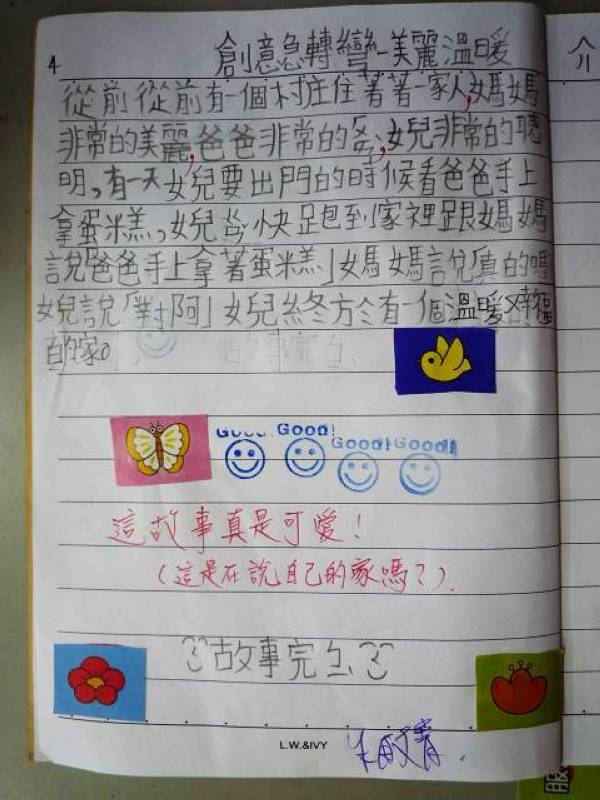 4
創意急轉彎-美麗溫暖
從前從前有一個村庄住著著一家人,媽媽
非常的美麗,爸爸非常的,女兒非常的聰
明,有一天女兒要出門的時候看爸爸手上
拿蛋糕,女兒快跑到家裡跟媽媽
說「爸爸手上拿著蛋糕」媽媽說「真的嗎
女兒說「對阿」女兒終於有一個溫暖又幸福
的家。
Good! Good! Good! Good!
這故事真是可愛!
(這是在說自己的家嗎?).
故事完
L.W.&IVY
介